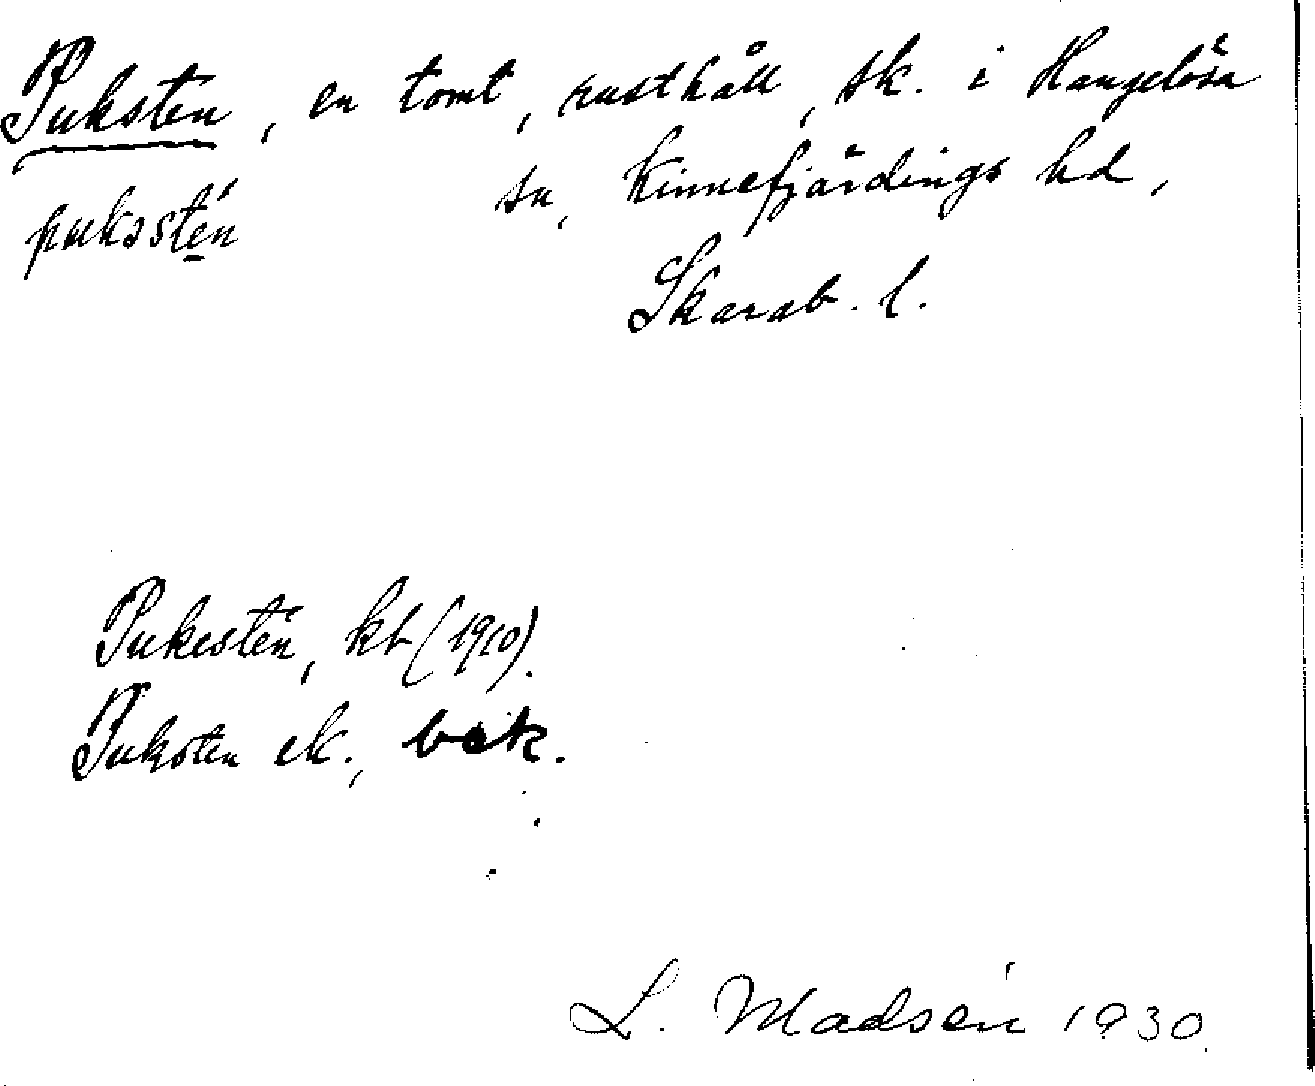 Puksten, en tomt, rusthåll, sk. i Hangelösa
sn, Kinnefjärdings hd,
puksstén
Skarab. l.
Pukesten, kb (1910).
Puksten ek., bok.
L. Madsén 1930.